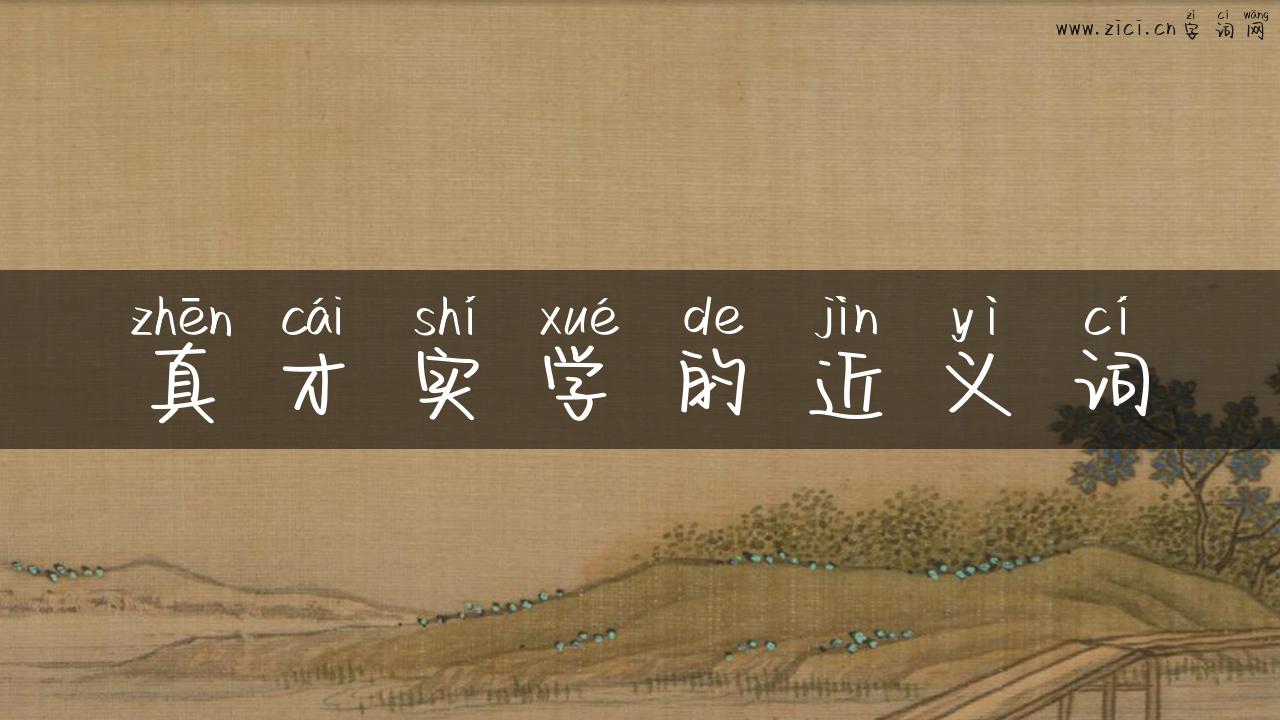 zì cí wǎng
www.zici.cn字词网
zhēn cái shí xué de jìn yì cí
真才实学的近义词